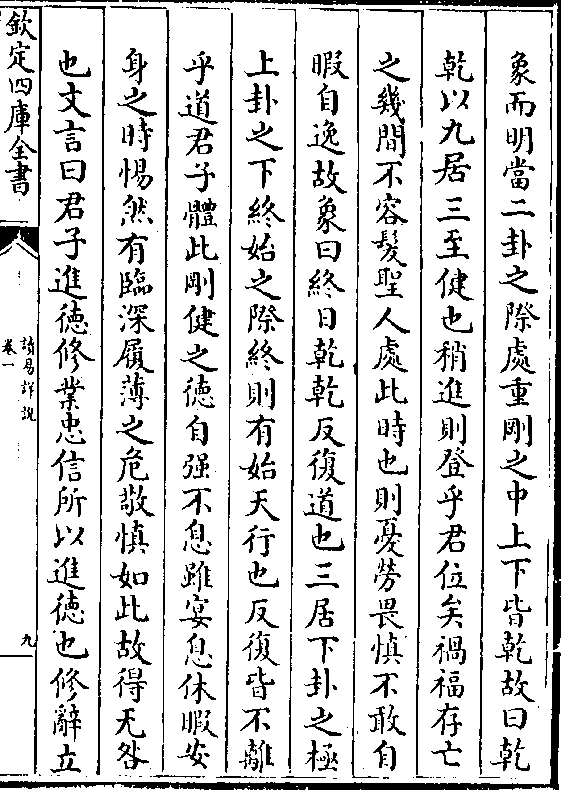 象而明當二卦之際處重剛之中上下皆乾故曰乾
乾以九居三至健也稍進則登乎君位矣禍福存亡
之幾間不容髮聖人處此時也則憂勞畏慎不敢自
暇自逸故象曰終日乾乾反復道也三居下卦之極
上卦之下終始之際終則有始天行也反復皆不離
乎道君子體此剛健之德自强不息雖宴息休暇安
身之時惕然有臨深履薄之危敬慎如此故得无咎
也文言曰君子進德修業忠信所以進德也修辭立
欽定四庫全書
讀易詳說
卷一
九